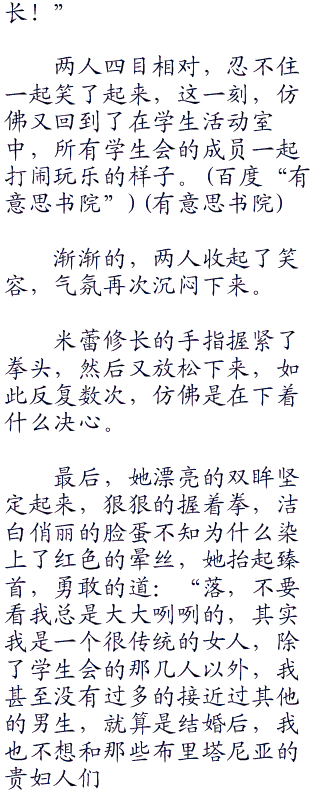 长！”
两人四目相对，忍不住
一起笑了起来，这一刻，仿
佛又回到了在学生活动室
中，所有学生会的成员一起
打闹玩乐的样子。(百度“有
意思书院”) (有意思书院)
渐渐的，两人收起了笑
容，气氛再次沉闷下来。
米蕾修长的手指握紧了
拳头，然后又放松下来，如
此反复数次，仿佛是在下着
什么决心。
最后，她漂亮的双眸坚
定起来，狠狠的握着拳，洁
白俏丽的脸蛋不知为什么染
上了红色的晕丝，她抬起臻
首，勇敢的道：“落，不要
看我总是大大咧咧的，其实
我是一个很传统的女人，除
了学生会的那几人以外，我
甚至没有过多的接近过其他
的男生，就算是结婚后，我
也不想和那些布里塔尼亚的
贵妇人们